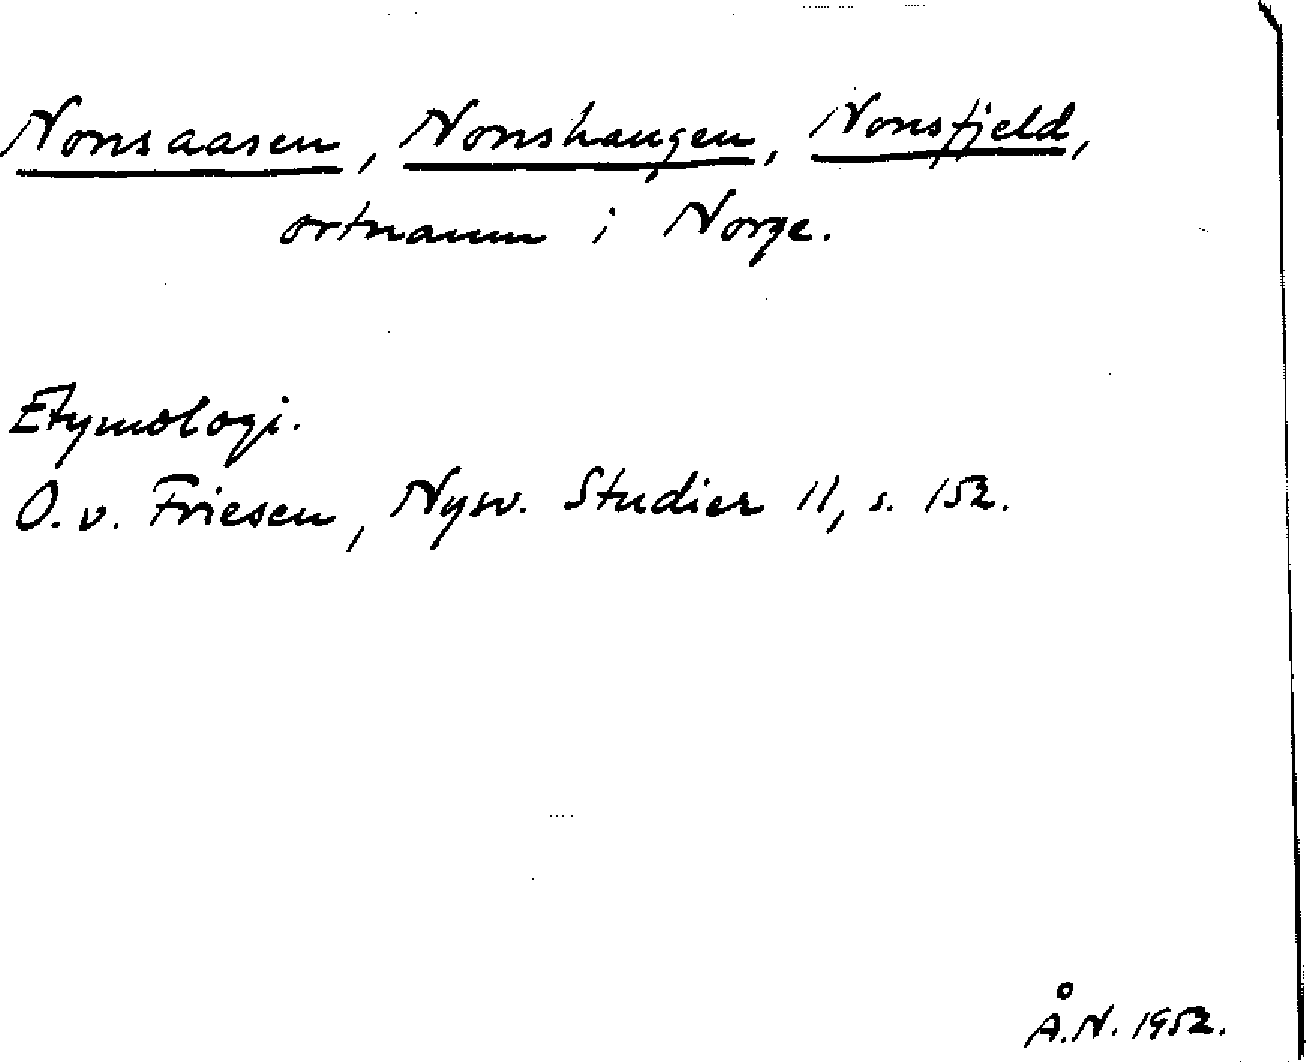 Nonsaasen, Nonshaugen, Nonsfjeld,
ortnamn i Norge.
Etymologi.
O. v. Friesen, Nysv. Studier 11, s. 152.
Å.N. 1952.